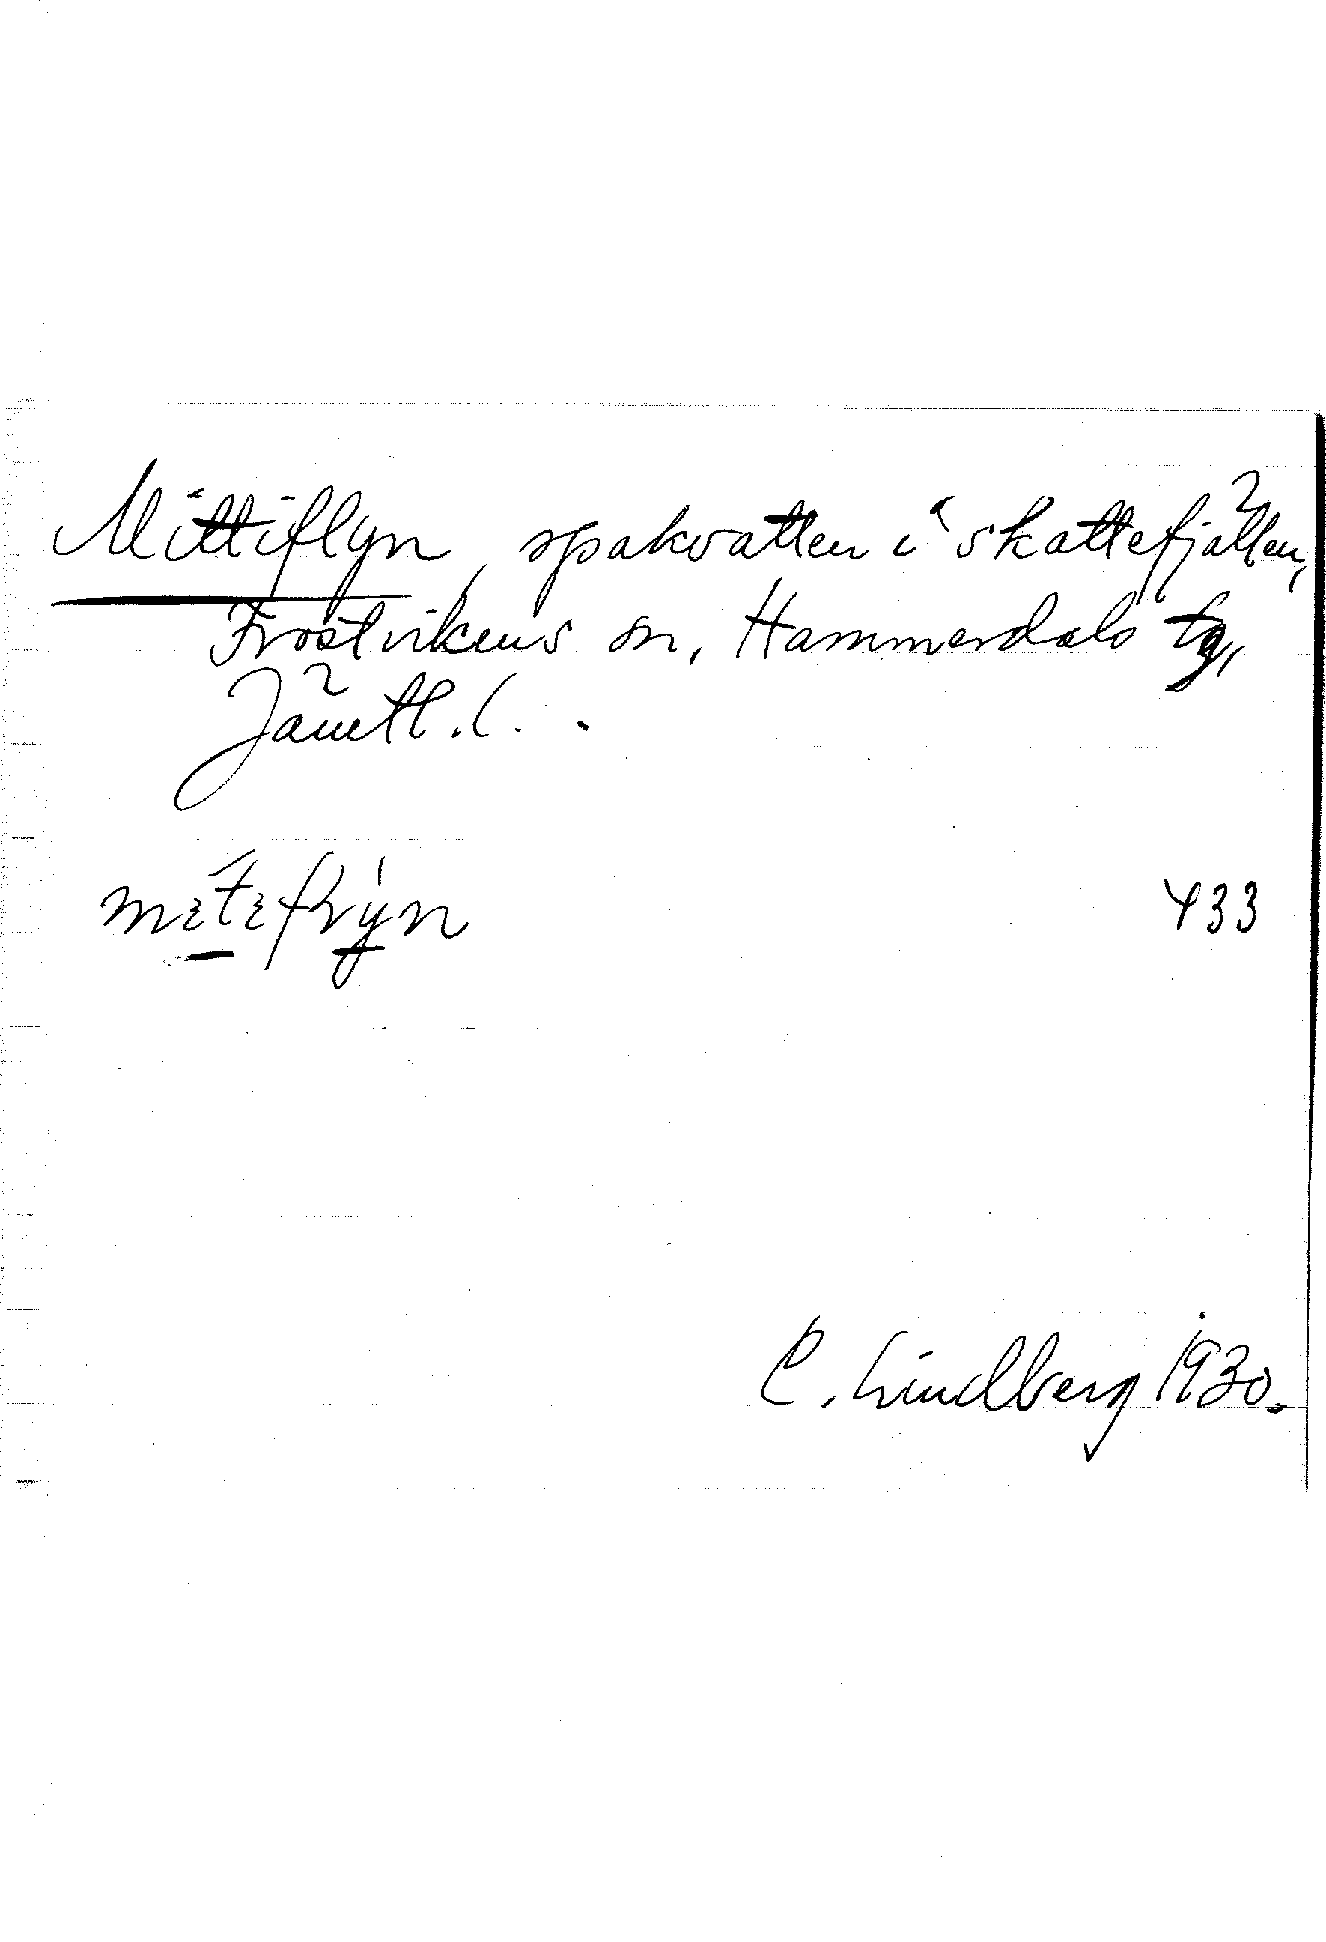 Mittiflyn, spakvatten i skattefjällen,
Frostvikens sn, Hammerdals tg,
Jämtl. l.
433
C. Lindberg 1930.